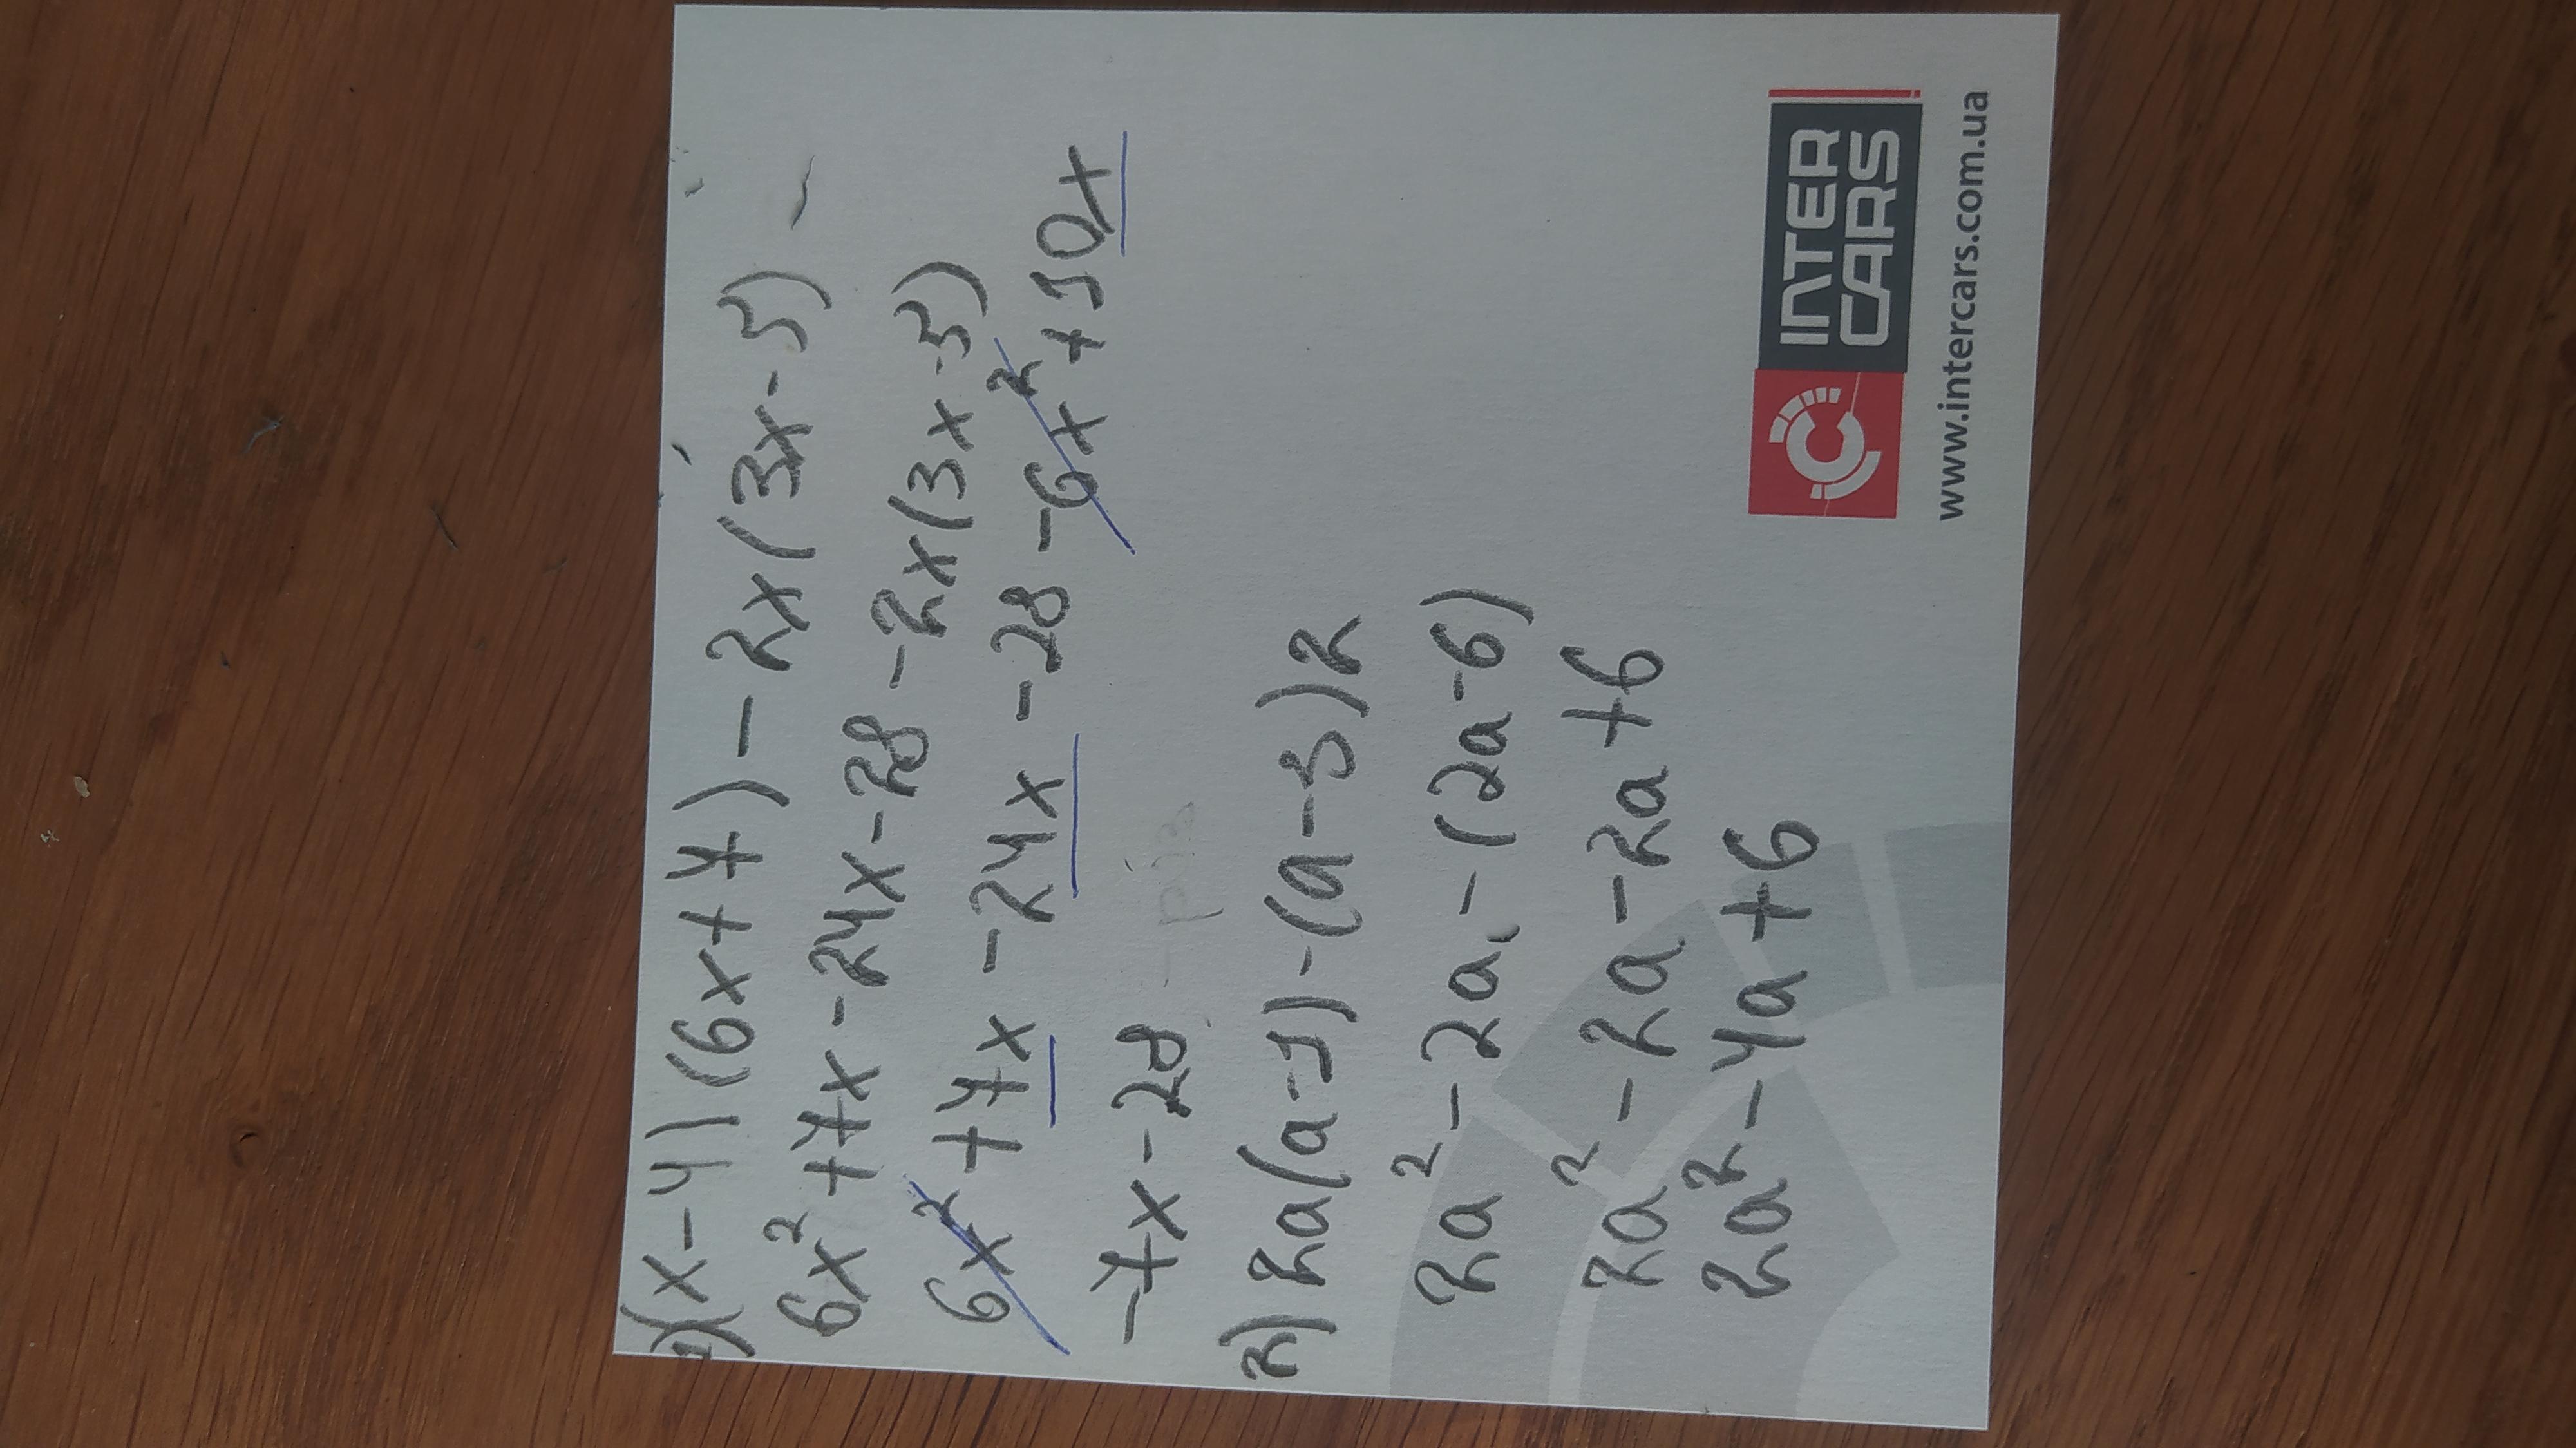 1)(x-4)(6x+7)-2x(3x-5)-
6x²+7x-24x-28-2x(3x-5)
6x²+7x-24x-28-6x²+10x
-7x-28
2)2a(a-1)-(a-3)2
2a²-2a-(2a-6)
2a²-2a-2a+6
2a²-4a+6
INTER
CARS
www.intercars.com.ua